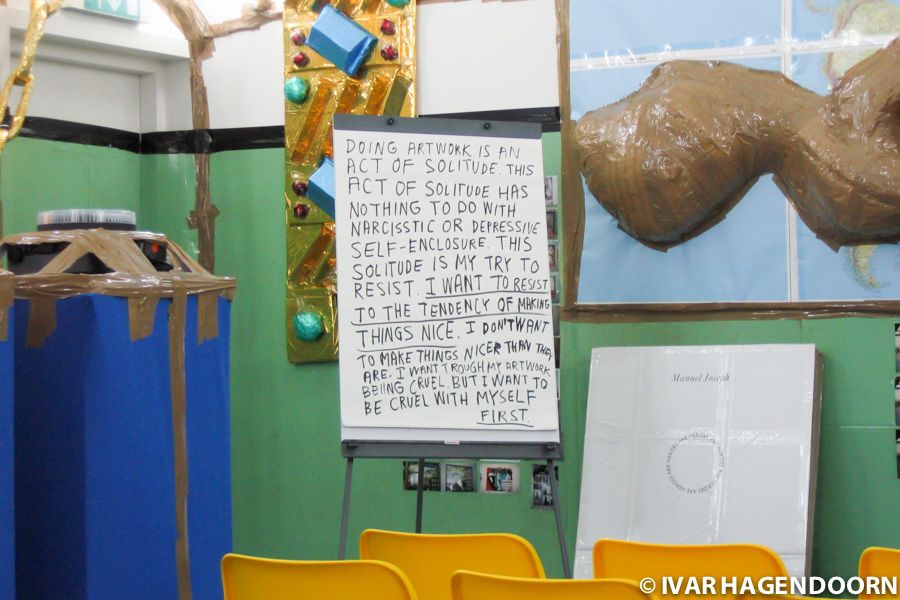 DOING ARTWORK IS AN
ACT OF SOLITUDE. THIS
ACT OF SOLITUDE HAS
NOTHING TO DO WITH
NARCISSTIC OR DEPRESSIVE
SELF-ENCLOSURE. THIS
SOLITUDE IS MY TRY TO
RESIST. I WANT TO RESIST
TO THE TENDENCY OF MAKING
THINGS NICE. I DON'T WANT
TO MAKE THINGS NICER THAN THEY
ARE. I WANT TROUGH MY ARTWORK
BEIING CRUEL. BUT I WANT TO
BE CRUEL WITH MYSELF
FIRST.
Manuel Joseph
© IVAR HAGENDOORN